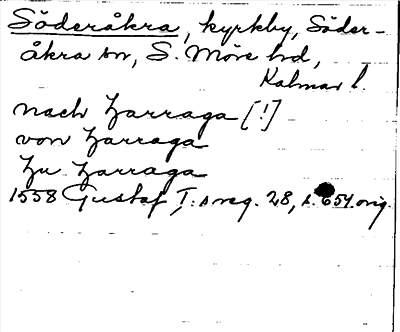 Söderåkra, kyrkby, Söder-
åkra sn, S. Möre hd,
Kalmar l.
nach Zarraga [!]
von Zarraga
Zu Zarraga
1558 Gustaf I:s reg. 28, s. 654. orig.